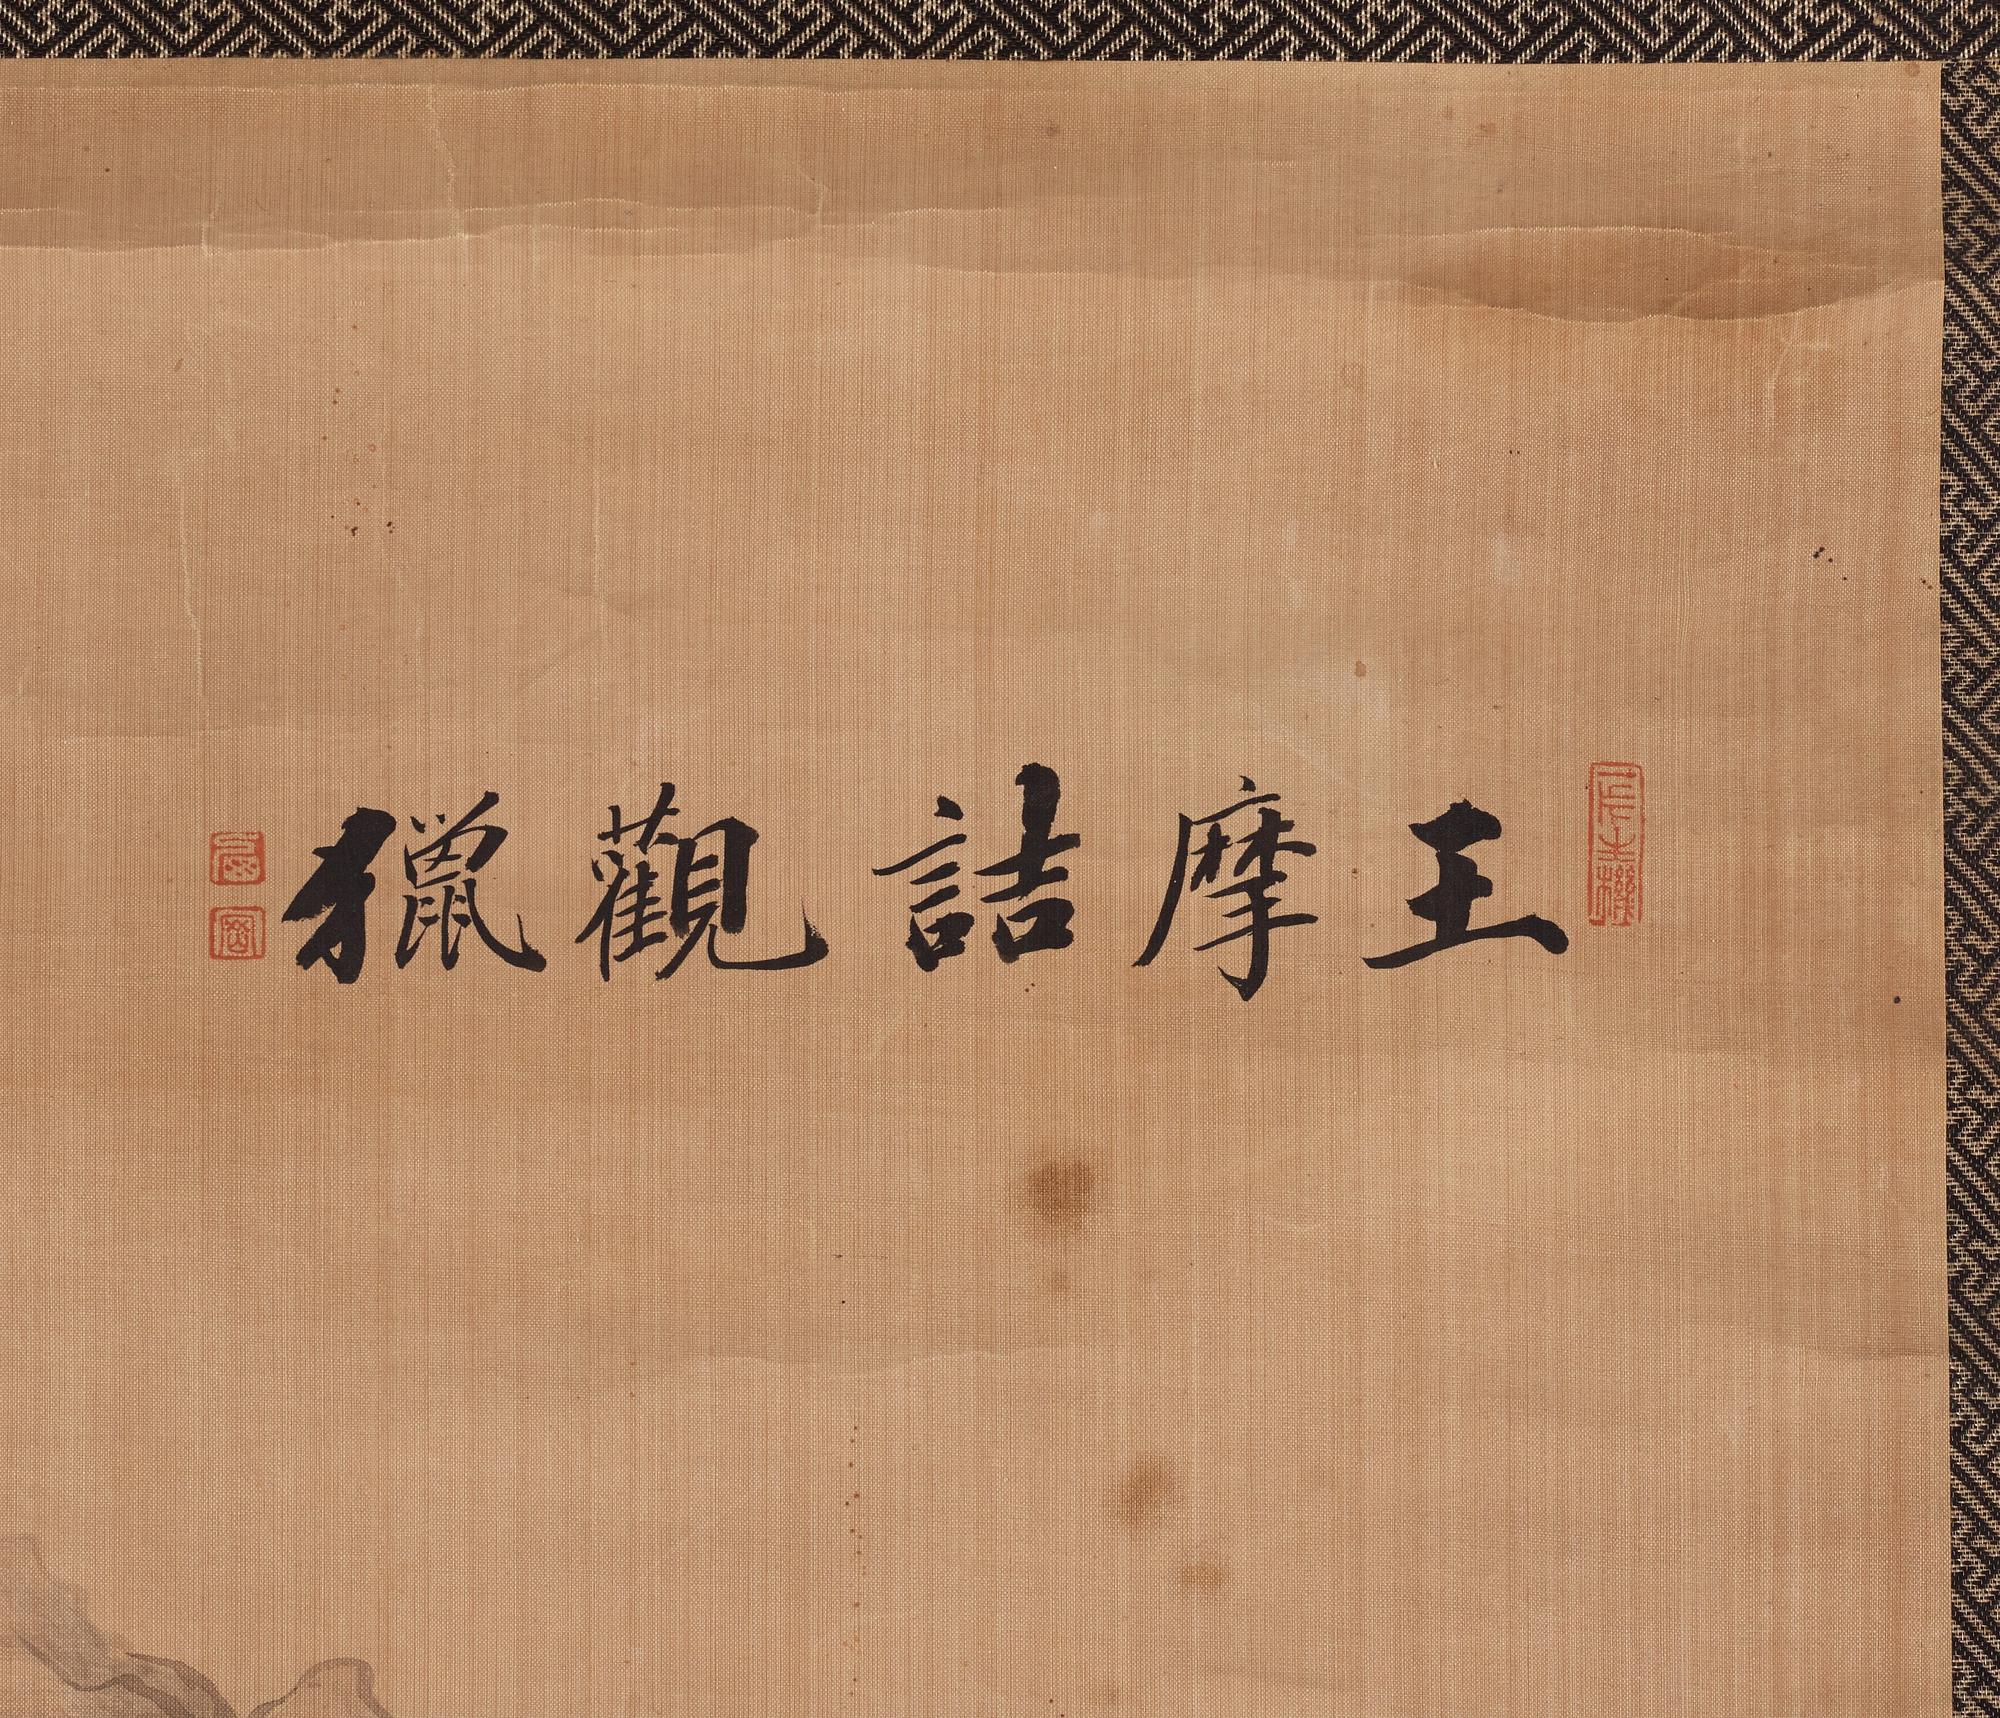 王摩詰觀獵